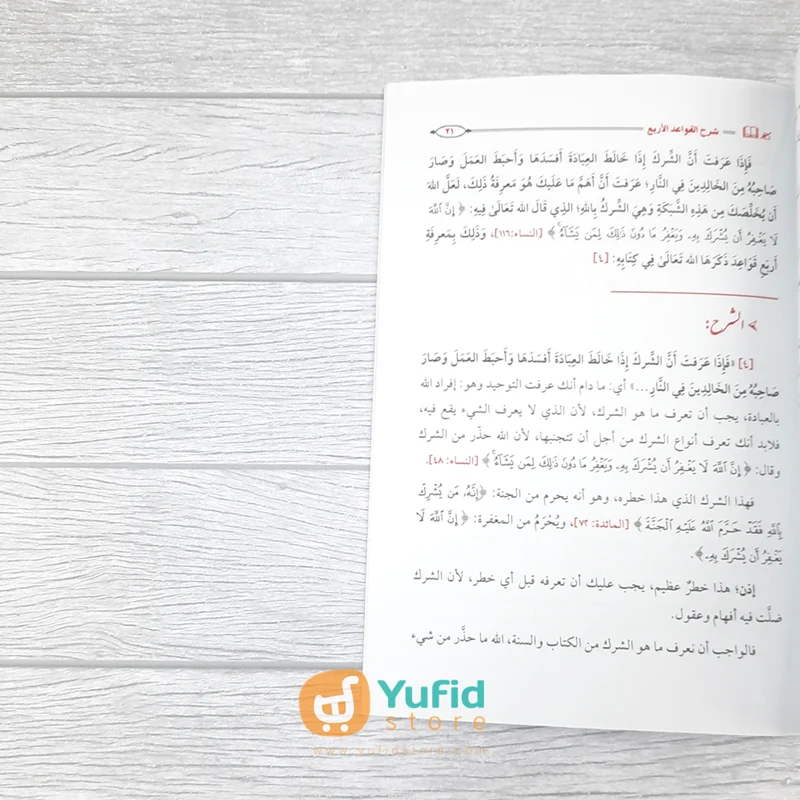 شرح القواعد الأربع
٢١
فَإِذَا عَرَفتَ أَنَّ الشِّركَ إِذَا خَالَطَ العِبَادَةَ أَفسَدَهَا وَأَحبَطَ العَمَلَ وَصَارَ
صَاحِبُهُ مِنَ الخَالِدِينَ فِي النَّارِ؛ عَرَفتَ أَنَّ أَهَمَّ مَا عَلَيكَ هُوَ مَعرِفَةُ ذَلِكَ، لَعَلَّ الله
أَن يُخَلِّصَكَ مِن هَذِهِ الشَّبَكَةِ وَهِيَ الشِّركُ بِاللهِ؛ الذِي قَالَ الله تَعَالَىٰ فِيهِ: ﴿ إِنَّ ٱللَّهَ
لَا يَغْفِرُ أَن يُشْرَكَ بِهِۦ وَيَغْفِرُ مَا دُونَ ذَٰلِكَ لِمَن يَشَآءُۚ ﴾ [النساء:١١٦]، وَذَلِكَ بِمَعرِفَةِ
أَربَعِ قَوَاعِدَ ذَكَرَهَا الله تَعَالَىٰ فِي كِتَابِهِ: [٤]
الشرح:
[٤] «فَإِذَا عَرَفتَ أَنَّ الشِّركَ إِذَا خَالَطَ العِبَادَةَ أَفسَدَهَا وَأَحبَطَ العَمَلَ وَصَارَ
صَاحِبُهُ مِنَ الخَالِدِينَ فِي النَّارِ...» أي: ما دام أنك عرفت التوحيد وهو: إفراد الله
بالعبادة، يجب أن تعرف ما هو الشرك، لأن الذي لا يعرف الشيء يقع فيه،
فلابد أنك تعرف أنواع الشرك من أجل أن تتجنبها، لأن الله حذّر من الشرك
وقال: ﴿ إِنَّ ٱللَّهَ لَا يَغْفِرُ أَن يُشْرَكَ بِهِۦ وَيَغْفِرُ مَا دُونَ ذَٰلِكَ لِمَن يَشَآءُۚ ﴾ [النساء: ٤٨].
فهذا الشرك الذي هذا خطره، وهو أنه يحرم من الجنة: ﴿إِنَّهُۥ مَن يُشْرِكْ
بِٱللَّهِ فَقَدْ حَرَّمَ ٱللَّهُ عَلَيْهِ ٱلْجَنَّةَ ﴾ [المائدة: ٧٢]، ويُحْرَمُ من المغفرة: ﴿ إِنَّ ٱللَّهَ لَا
يَغْفِرُ أَن يُشْرَكَ بِهِۦ﴾.
إذن؛ هذا خطرٌ عظيم، يجب عليك أن تعرفه قبل أي خطر، لأن الشرك
ضلَّت فيه أفهام وعقول.
فالواجب أن نعرف ما هو الشرك من الكتاب والسنة، الله ما حذَّر من شيء
Yufid
store
www.yufidstore.com